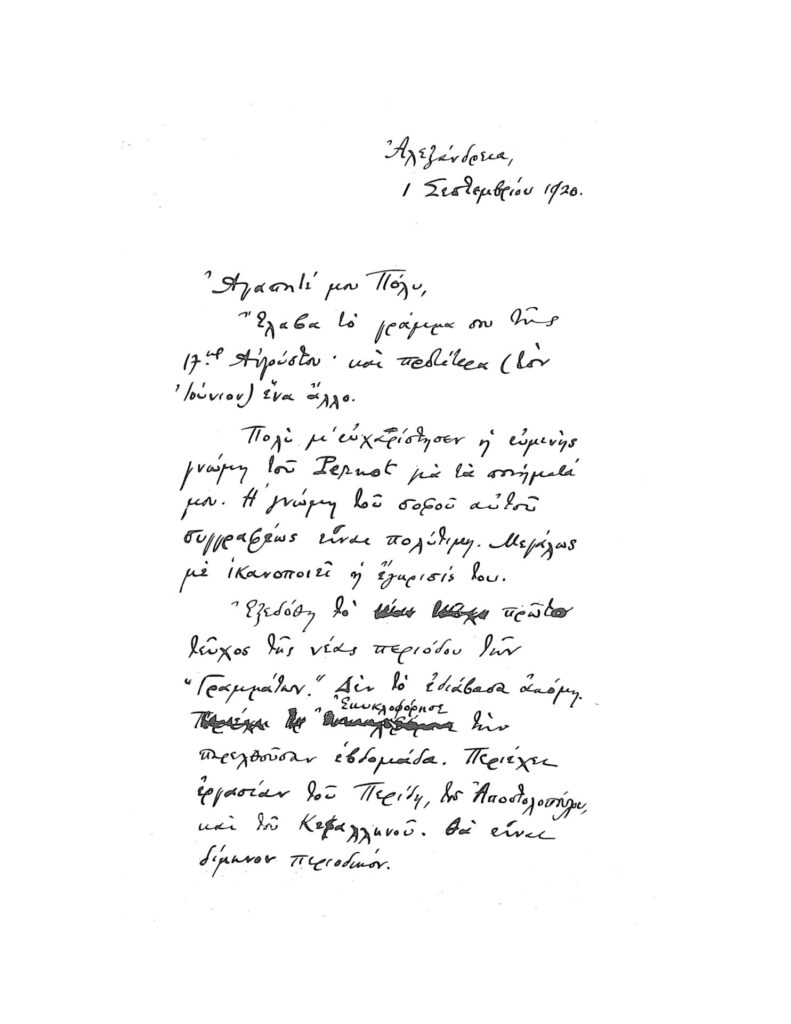 Ἀλεξάνδρεια,
1 Σεπτεμβρίου 1920.
Ἀγαπητέ μου Πόλυ,
Ἔλαβα τὸ γράμμα σου τῆς
17ης Αὐγούστου · καὶ πρωτίτερα (τὸν
Ἰούνιον) ἕνα ἄλλο.
Πολὺ μ' εὐχαρίστησεν ἡ εὐμενὴς
γνώμη τοῦ Pernot γιὰ τὰ ποιήματά
μου. Ἡ γνώμη τοῦ σοφοῦ αὐτοῦ
συγγραφέως εἶναι πολύτιμη. Μεγάλως
μὲ ἱκανοποιεῖ ἡ ἔγκρισίς του.
Ἐξεδόθη τὸ πρῶτο
τεῦχος τῆς νέας περιόδου τῶν
"Γραμμάτων." Δὲν τὸ ἐδιάβασα ἀκόμη.
Ἐκυκλοφόρησε τὴν
παρελθοῦσαν ἑβδομάδα. Περιέχει
ἐργασίαν τοῦ Περίδη, τῆς Ἀποστολοπούλου,
καὶ τοῦ Κεφαλληνοῦ. Θὰ εἶναι
δίμηνον περιοδικόν.